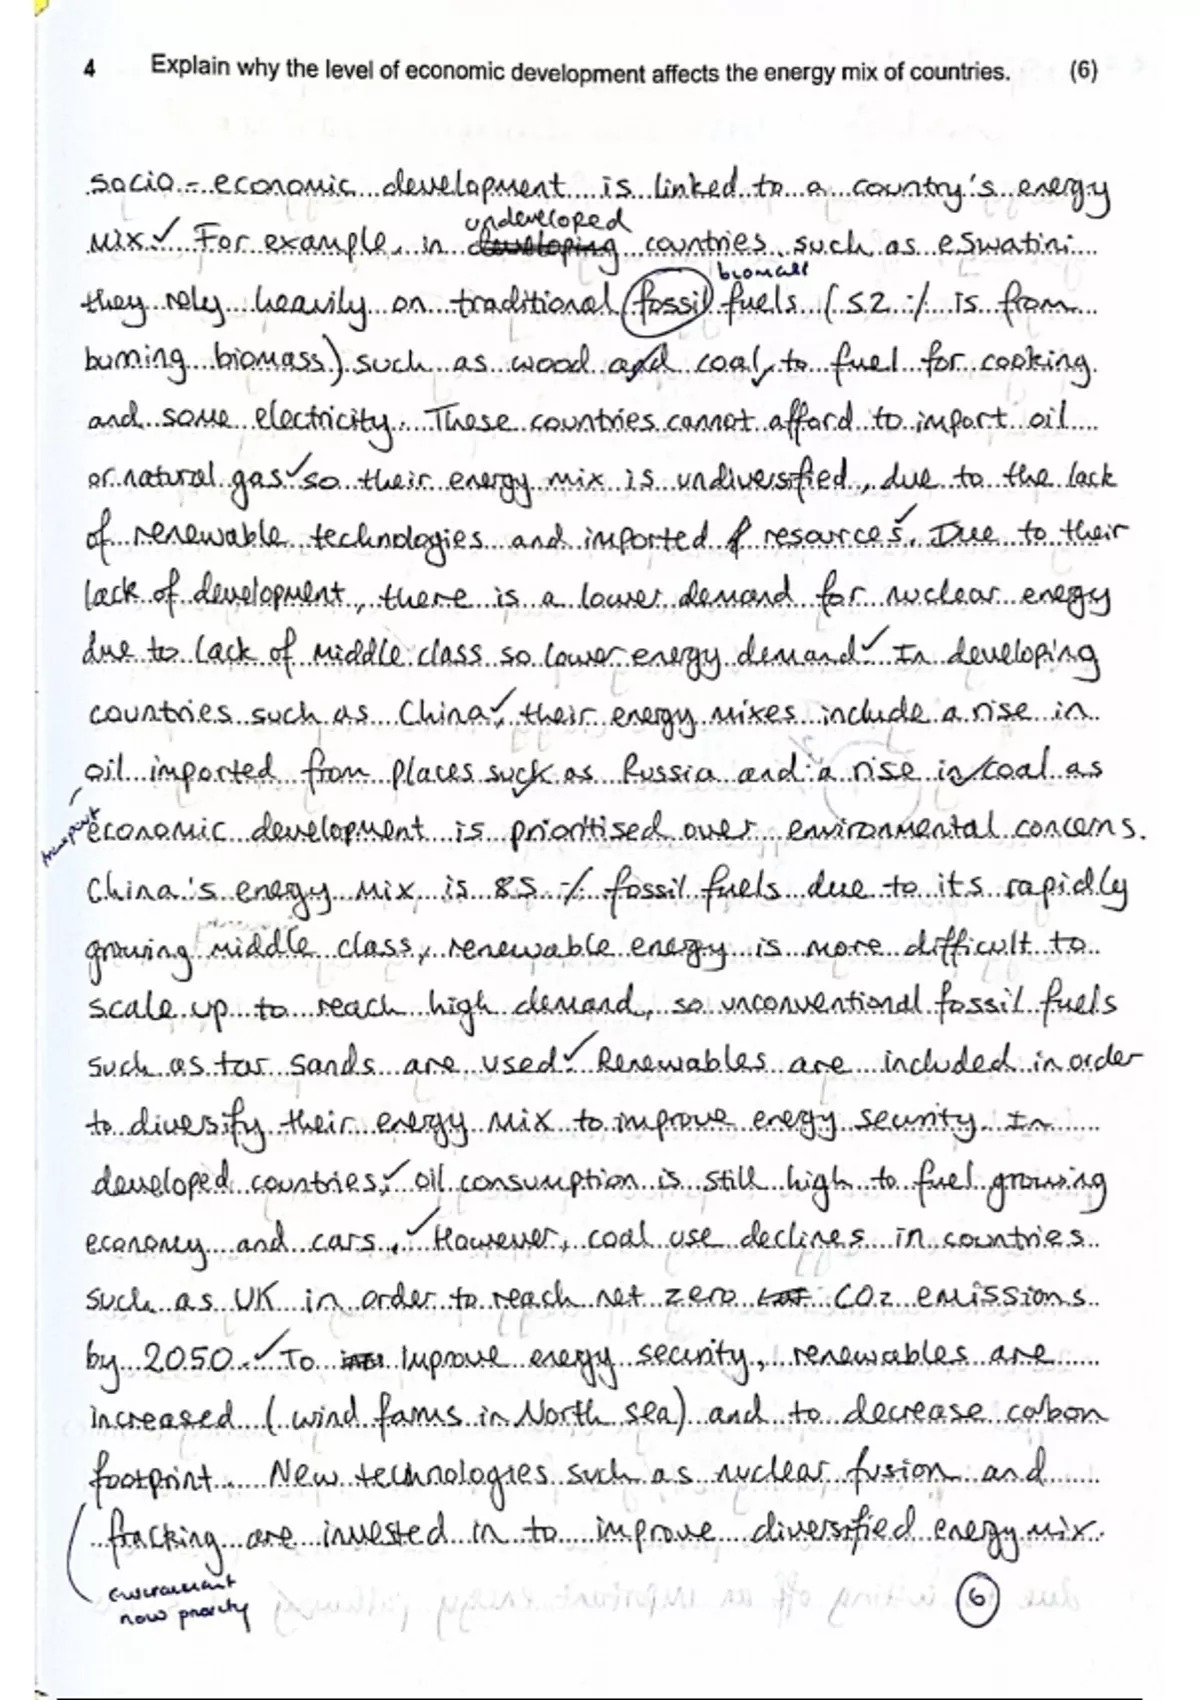 4 Explain why the level of economic development affects the energy mix of countries. (6)
socio-economic development is linked to a country's energy
undeveloped
mix ✓. For example, in developing countries such as eSwatini
biomass
they rely heavily on traditional fossil fuels (52 % is from
burning biomass) such as wood and coal, to fuel for cooking
and some electricity. These countries cannot afford to import oil
or natural gas ✓ so their energy mix is undiversified, due to the lack
of renewable technologies and imported f resources ✓. Due to their
lack of development, there is a lower demand for nuclear energy
due to lack of middle class so lower energy demand ✓. In developing
countries such as China ✓, their energy mixes include a rise in
oil imported from places such as Russia and a rise in coal as
transport
economic development is prioritised over environmental concerns.
China's energy mix is 85 % fossil fuels due to its rapidly
growing middle class, renewable energy is more difficult to
scale up to reach high demand, so unconventional fossil fuels
such as tar sands are used ✓. Renewables are included in order
to diversify their energy mix to improve energy security. In
developed countries, ✓ oil consumption is still high to fuel growing
economy and cars. ✓ However, coal use declines in countries
such as UK in order to reach net zero CO2 emissions
by 2050. ✓ To improve energy security, renewables are
increased (wind farms in North sea) and to decrease carbon
footprint. New technologies such as nuclear fusion and
fracking are invested in to improve diversified energy mix.
environment
now priority
6